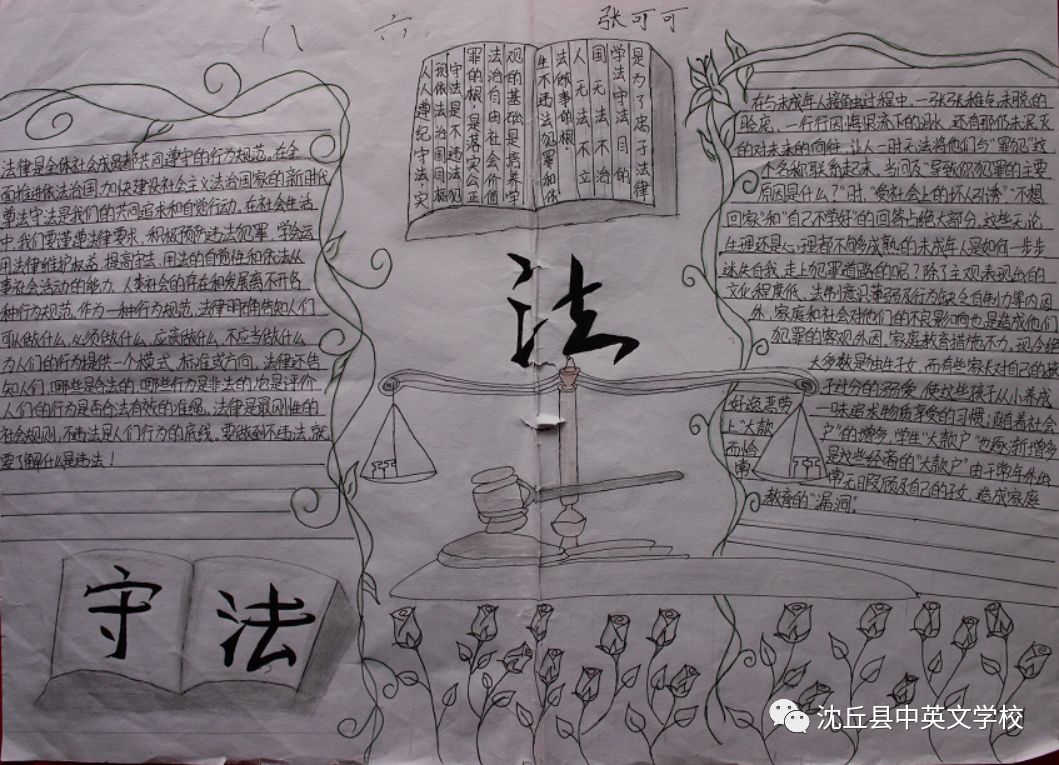 八 六 张可可
法律是全体社会成员都共同遵守的行为规范。在全
面推进依法治国,加快建设社会主义法治国家的新时代
尊法守法是我们的共同追求和自觉行动。在社会生活
中,我们要谨遵法律要求,积极预防违法犯罪,学会运
用法律维护权益,提高守法、用法的自觉性和依法从
事社会活动的能力。人类社会的存在和发展离不开各
种行为规范。作为一种行为规范,法律明确告知人们
可以做什么,必须做什么,应该做什么,不应当做什么,
为人们的行为提供一个模式、标准或方向。法律还告
知人们,哪些是合法的,哪些行为是非法的,也是评价
人们的行为是否合法有效的准绳。法律是最刚性的
社会规则,不违法是人们行为的底线。要做到不违法,就
要了解什么是违法!
人人遵纪守法,实
现依法治国目标
守法是不违法犯
罪的根是落实公正
法治自由社会价值
观的基础是培养学
生不违法犯罪和依
法做事的根。
人无法不立
国无法不治
学法守法目的
是为了忠于法律
法
在与未成年人接触过程中,一张张稚气未脱的
脸庞、一行行因悔恨流下的泪水、还有那仍未泯灭
的对未来的向往,让人一时无法将他们与“罪犯”这
个名称联系起来。当问及“导致你犯罪的主要
原因是什么?”时,“受社会上的坏人引诱”“不想
回家”和“自己不学好”的回答占绝大部分。这些无论
生理还是心理都不够成熟的未成年人是如何一步步
迷失自我,走上犯罪道路的呢?除了主观表现出的
文化程度低、法制意识薄弱及行为缺乏自制力等内因
外,家庭和社会对他们的不良影响也是造成他们
犯罪的客观外因。家庭教育措施不力。现今绝
大多数是独生子女,而有些家长对自己的孩
子过分的溺爱,使这些孩子从小养成
好逸恶劳 一味追求物质享受的习惯;随着社会
上“大款 户”的增多,学生“大款户”也逐渐增多
而恰 是这些经商的“大款户”由于常年外出
常 常无暇顾及自己的子女,造成家庭
教育的“漏洞”。
守法
沈丘县中英文学校